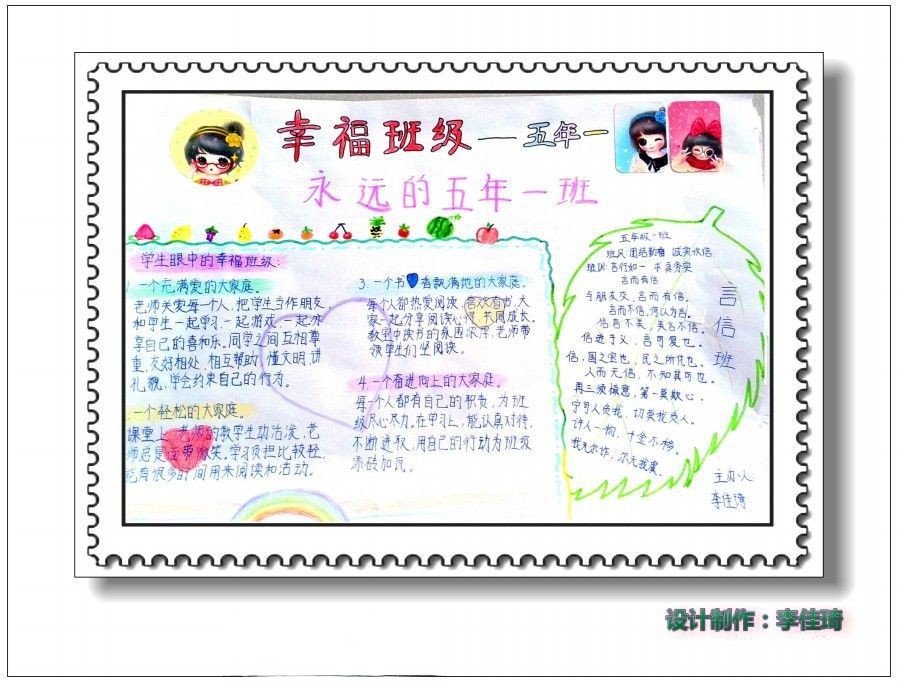 幸福班级——五年一
永远的五年一班
学生眼中的幸福班级:
1.一个充满爱的大家庭。
老师关爱每一个人,把学生当作朋友
和学生一起学习,一起游戏,一起分
享自己的喜和乐,同学之间互相尊
重,友好相处,相互帮助,懂文明,讲
礼貌,学会约束自己的行为。
一个轻松的大家庭。
课堂上,老师的教学生动活泼,老
师总是面带微笑,学习负担比较轻,
能有很多时间用来阅读和活动。
3.一个书香飘满地的大家庭。
每个人都热爱阅读,喜欢看书,大
家一起分享阅读心得,共同成长。
教室中读书的氛围浓厚,老师带
领学生们坚阅读。
4.一个奋进向上的大家庭。
每一个人都有自己的职责,为班
级尽心尽力,在学习上,能认真对待,
不断进取,用自己的行动为班级
添砖加瓦。
五年级一班
班风:团结勤奋 诚实求信
班训:言行如一 求真务实
言而有信
与朋友交,言而有信。
言而不信,何以为言。
信言不美,美言不信。
信进于义,言可复也。
信,国之宝也,民之所托也。
人而无信,不知其可也。
再三须慎意,第一莫欺心,
宁可人负我,切莫我负人。
许人一物,千金不移。
我无尔诈,尔无我虞。
言信班
主办人
李佳琦
设计制作:李佳琦